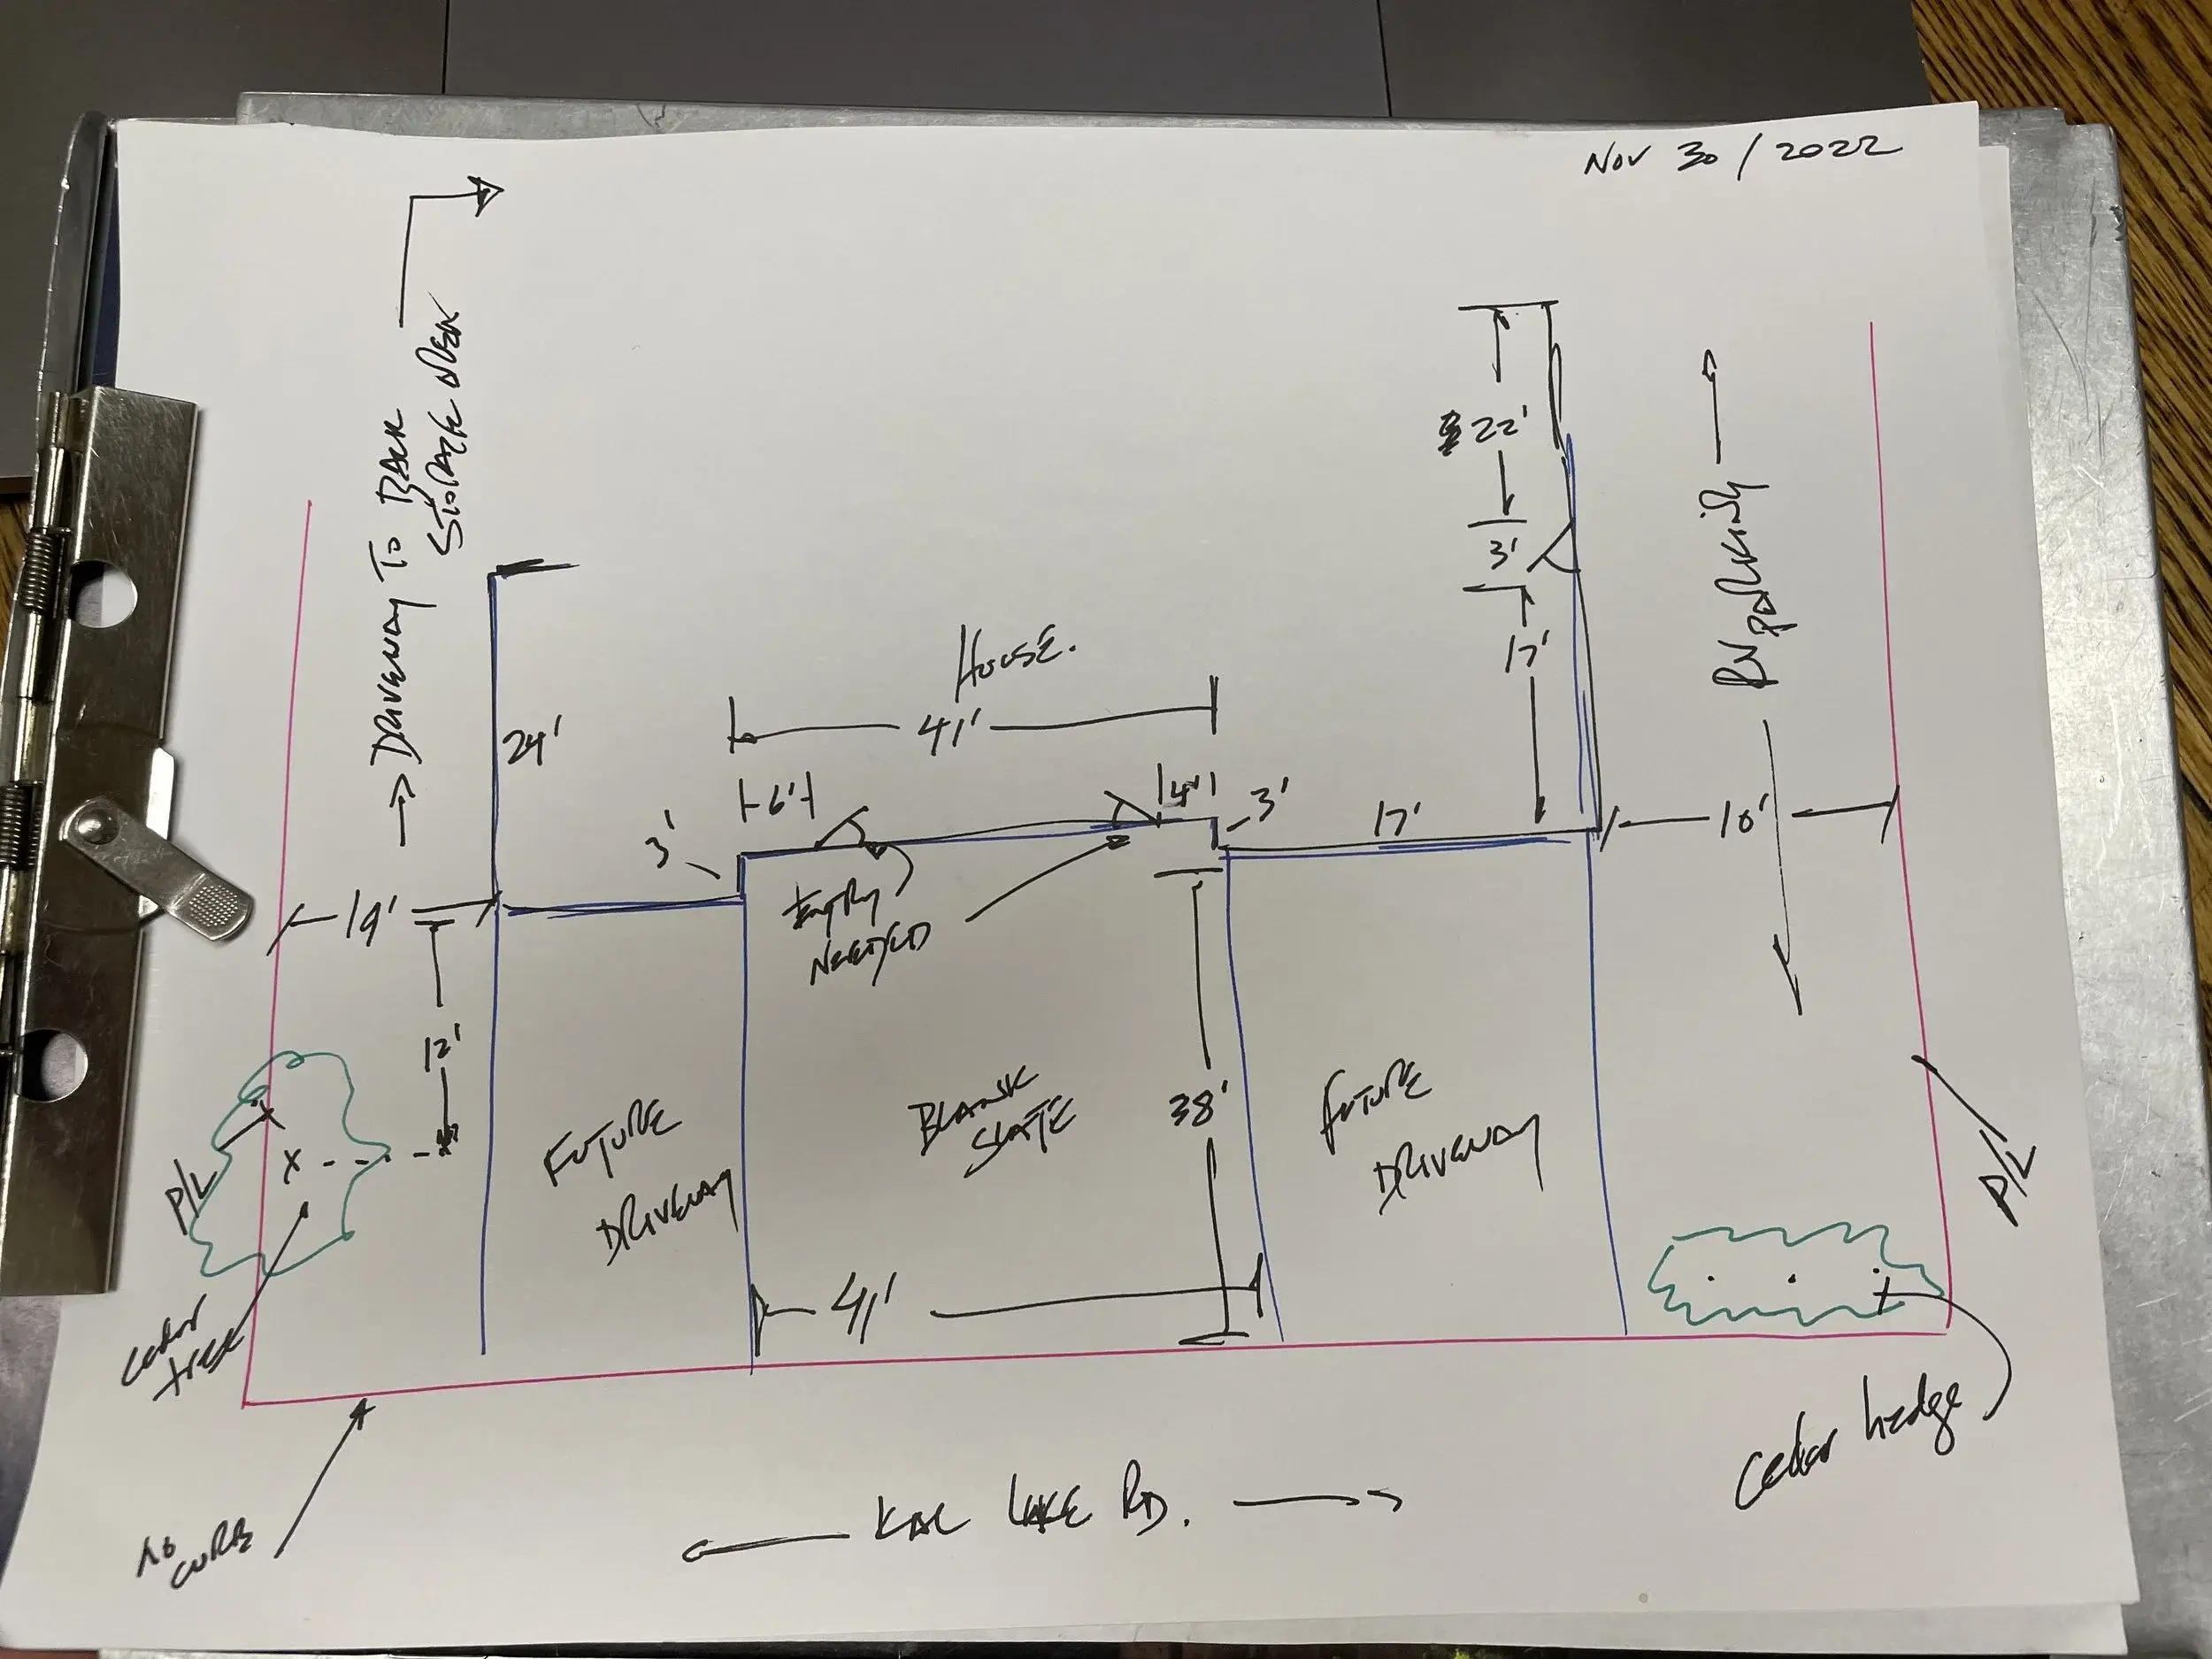 NOV 30 / 2022
→ DRIVEWAY TO BACK
STORAGE AREA
22'
3'
17'
RV PARKING
HOUSE.
41'
24'
6'
4'
3'
3'
17'
19'
ENTRY
NEEDED
12'
38'
FUTURE
DRIVEWAY
BLANK
SLATE
FUTURE
DRIVEWAY
P/L
P/L
41'
cedar
tree
cedar hedge
NO
CURB
KAL LAKE RD.